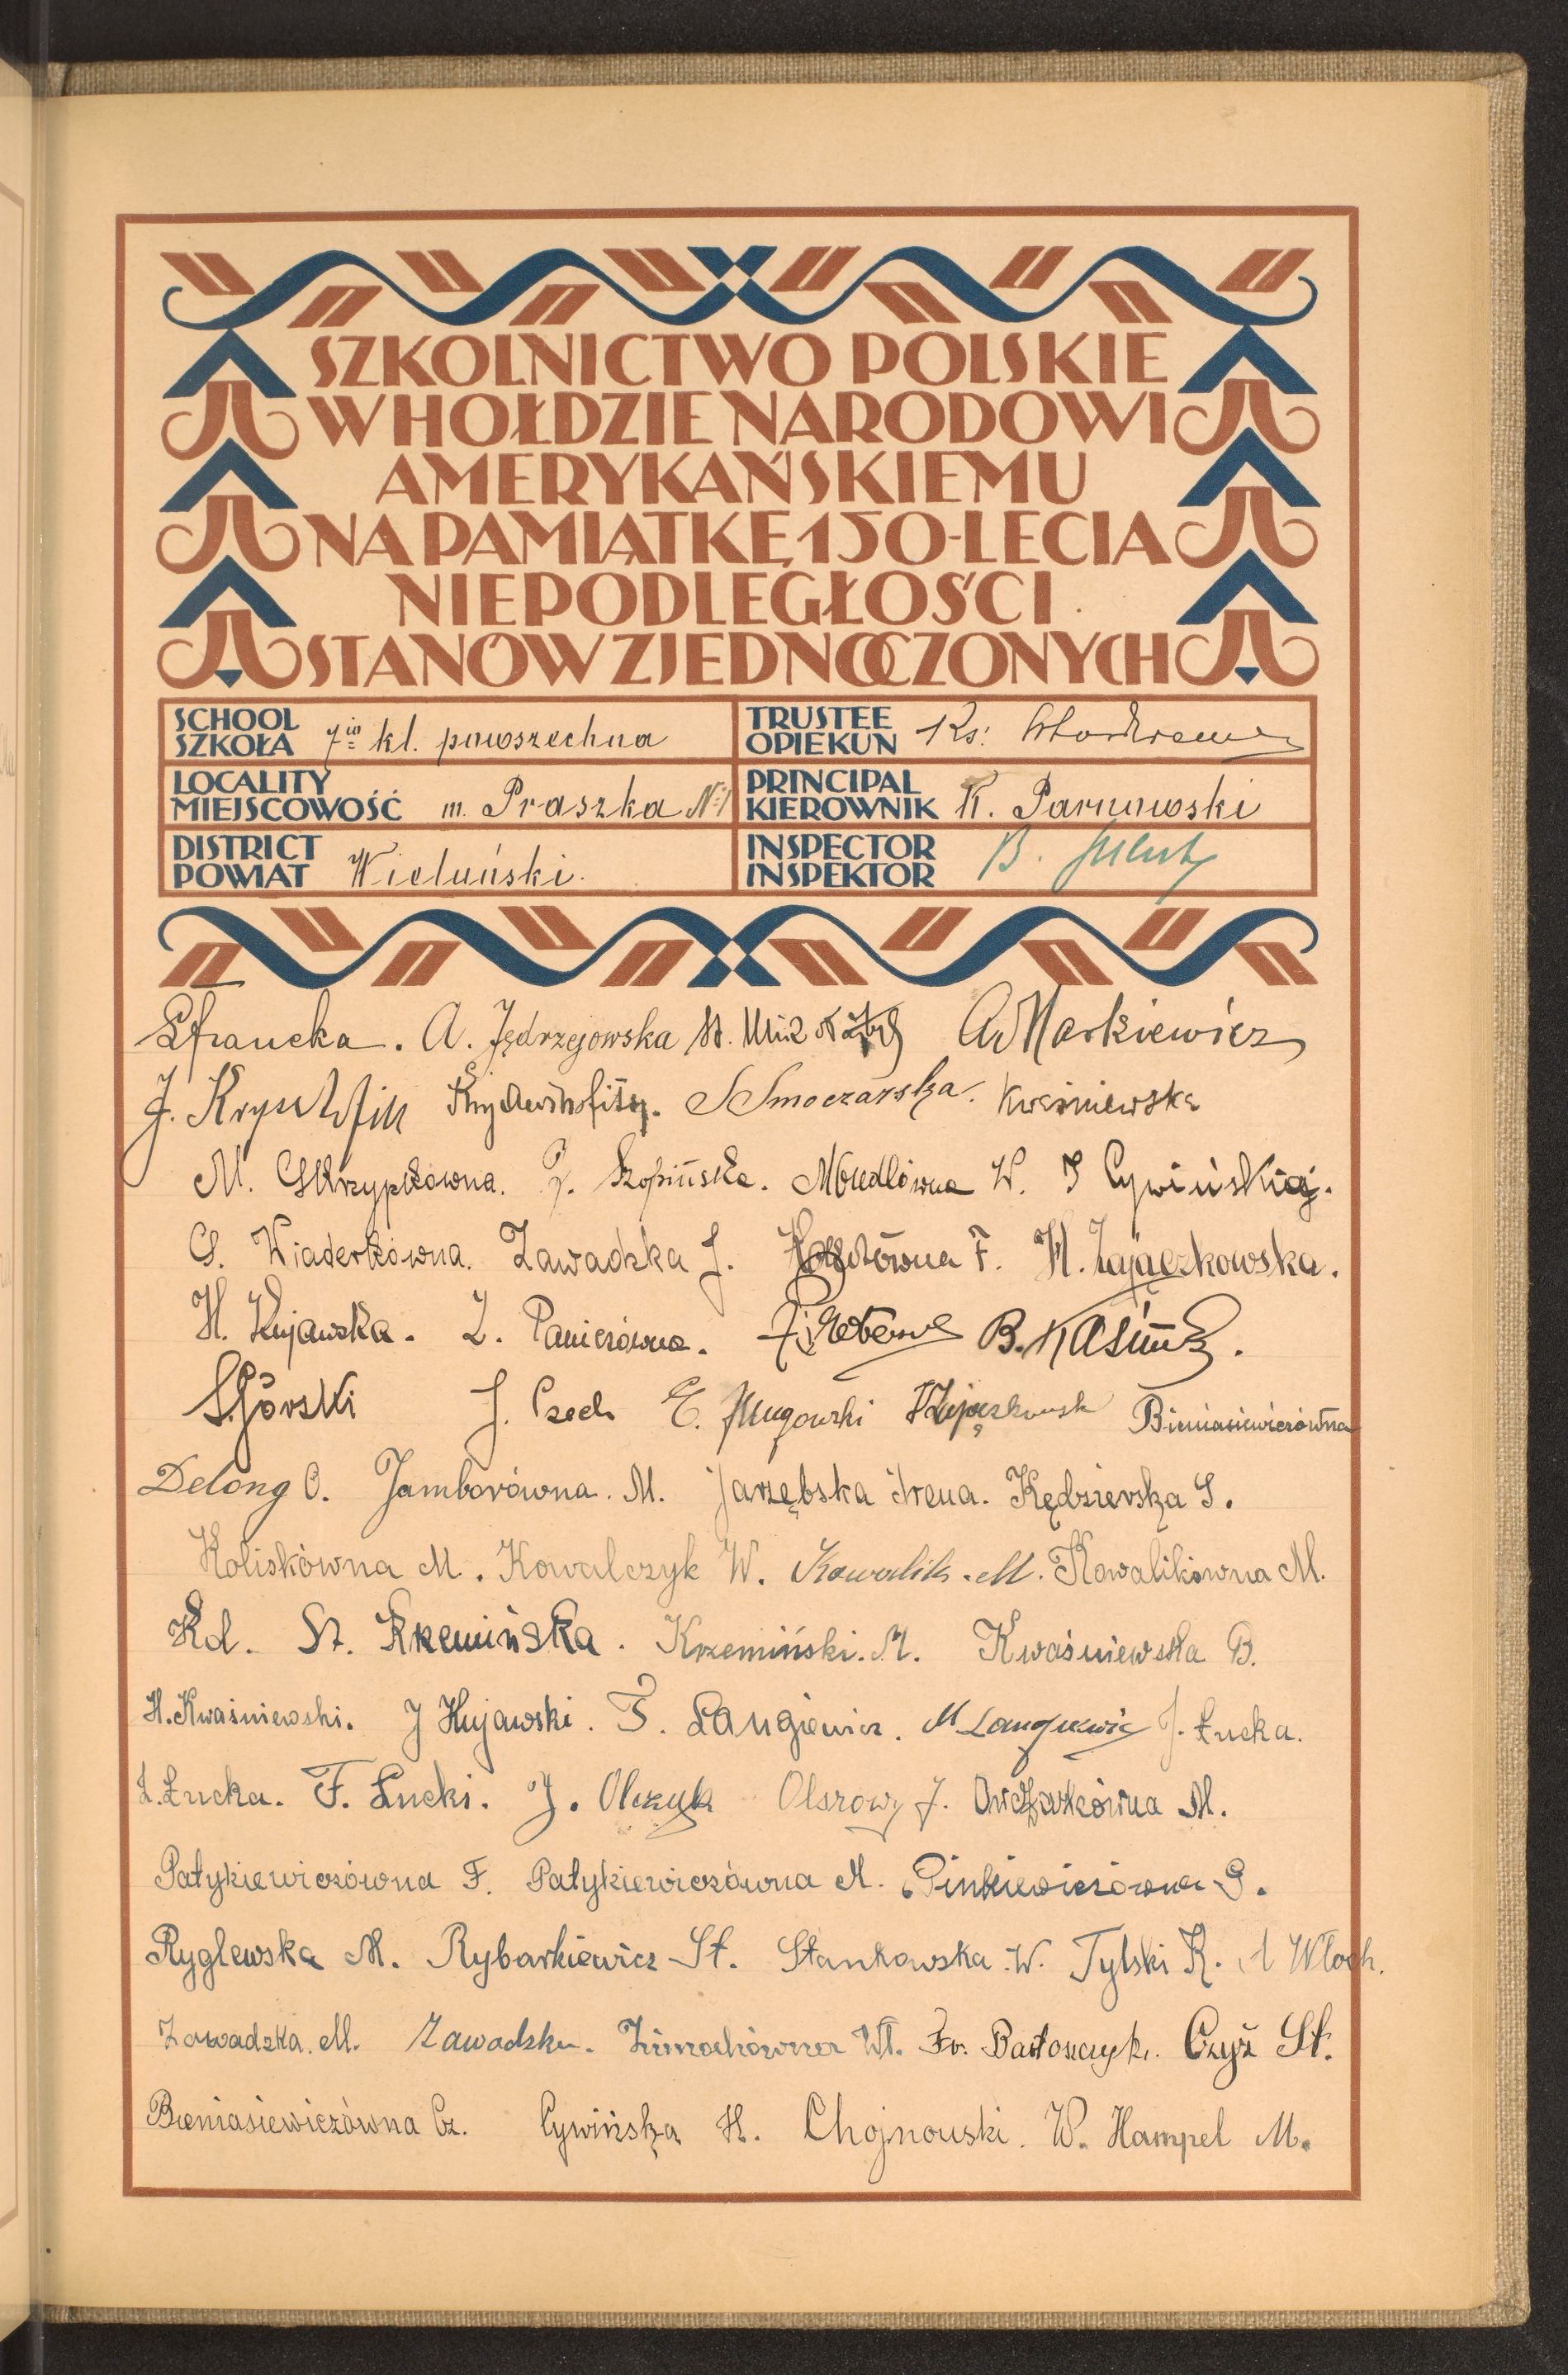 SZKOLNICTWO POLSKIE
W HOŁDZIE NARODOWI
AMERYKAŃSKIEMU
NA PAMIĄTKĘ 150-LECIA
NIEPODLEGŁOŚCI
STANÓW ZJEDNOCZONYCH
SCHOOL
SZKOŁA 7io kl. powszechna
TRUSTEE
OPIEKUN Ks.
LOCALITY
MIEJSCOWOŚĆ m. Praszka No 1
PRINCIPAL
KIEROWNIK K. Parnowski
DISTRICT
POWIAT Wieluński.
INSPECTOR
INSPEKTOR B.
A. Jędrzejowska A Markiewicz
J. S Smoczarska. Kwaśniewska
M. Skrzypkówna. Szopińska. W. J Cywińska.
Wiaderkówna. Zawadzka J. F. H. Zajączkowska.
H. Kujawska. Z. Panierówna. B.
S. Górski J. Czech E. Długowski Bieniasiewiczówna
Delong O. Jamborówna. M. Jarzębska Irena. Kędzierska S.
Koliskówna M. Kowalczyk W. Kowalik. M. Kowalikówna M.
Kd. St. Krzemińska. Krzemiński. M. Kwaśniewska B.
H. Kwaśniewski. J Kujawski. F. Langiewicz. M Langiewicz J. Łucka.
Z. Łucka. F. Łucki. J. Olczyk Olszowy J. Owczarkówna M.
Patykiewiczówna F. Patykiewiczówna M. Pinkiewiczówna S.
Ryglewska M. Rybarkiewicz St. Stankowska W. Tylski K. A Włoch.
Zawadzka. M. Zawadzka. Zimochówna Wł. Fr. Bartoszczyk. Czyż St.
Bieniasiewiczówna Cz. Cywińska H. Chojnowski. W. Hampel M.